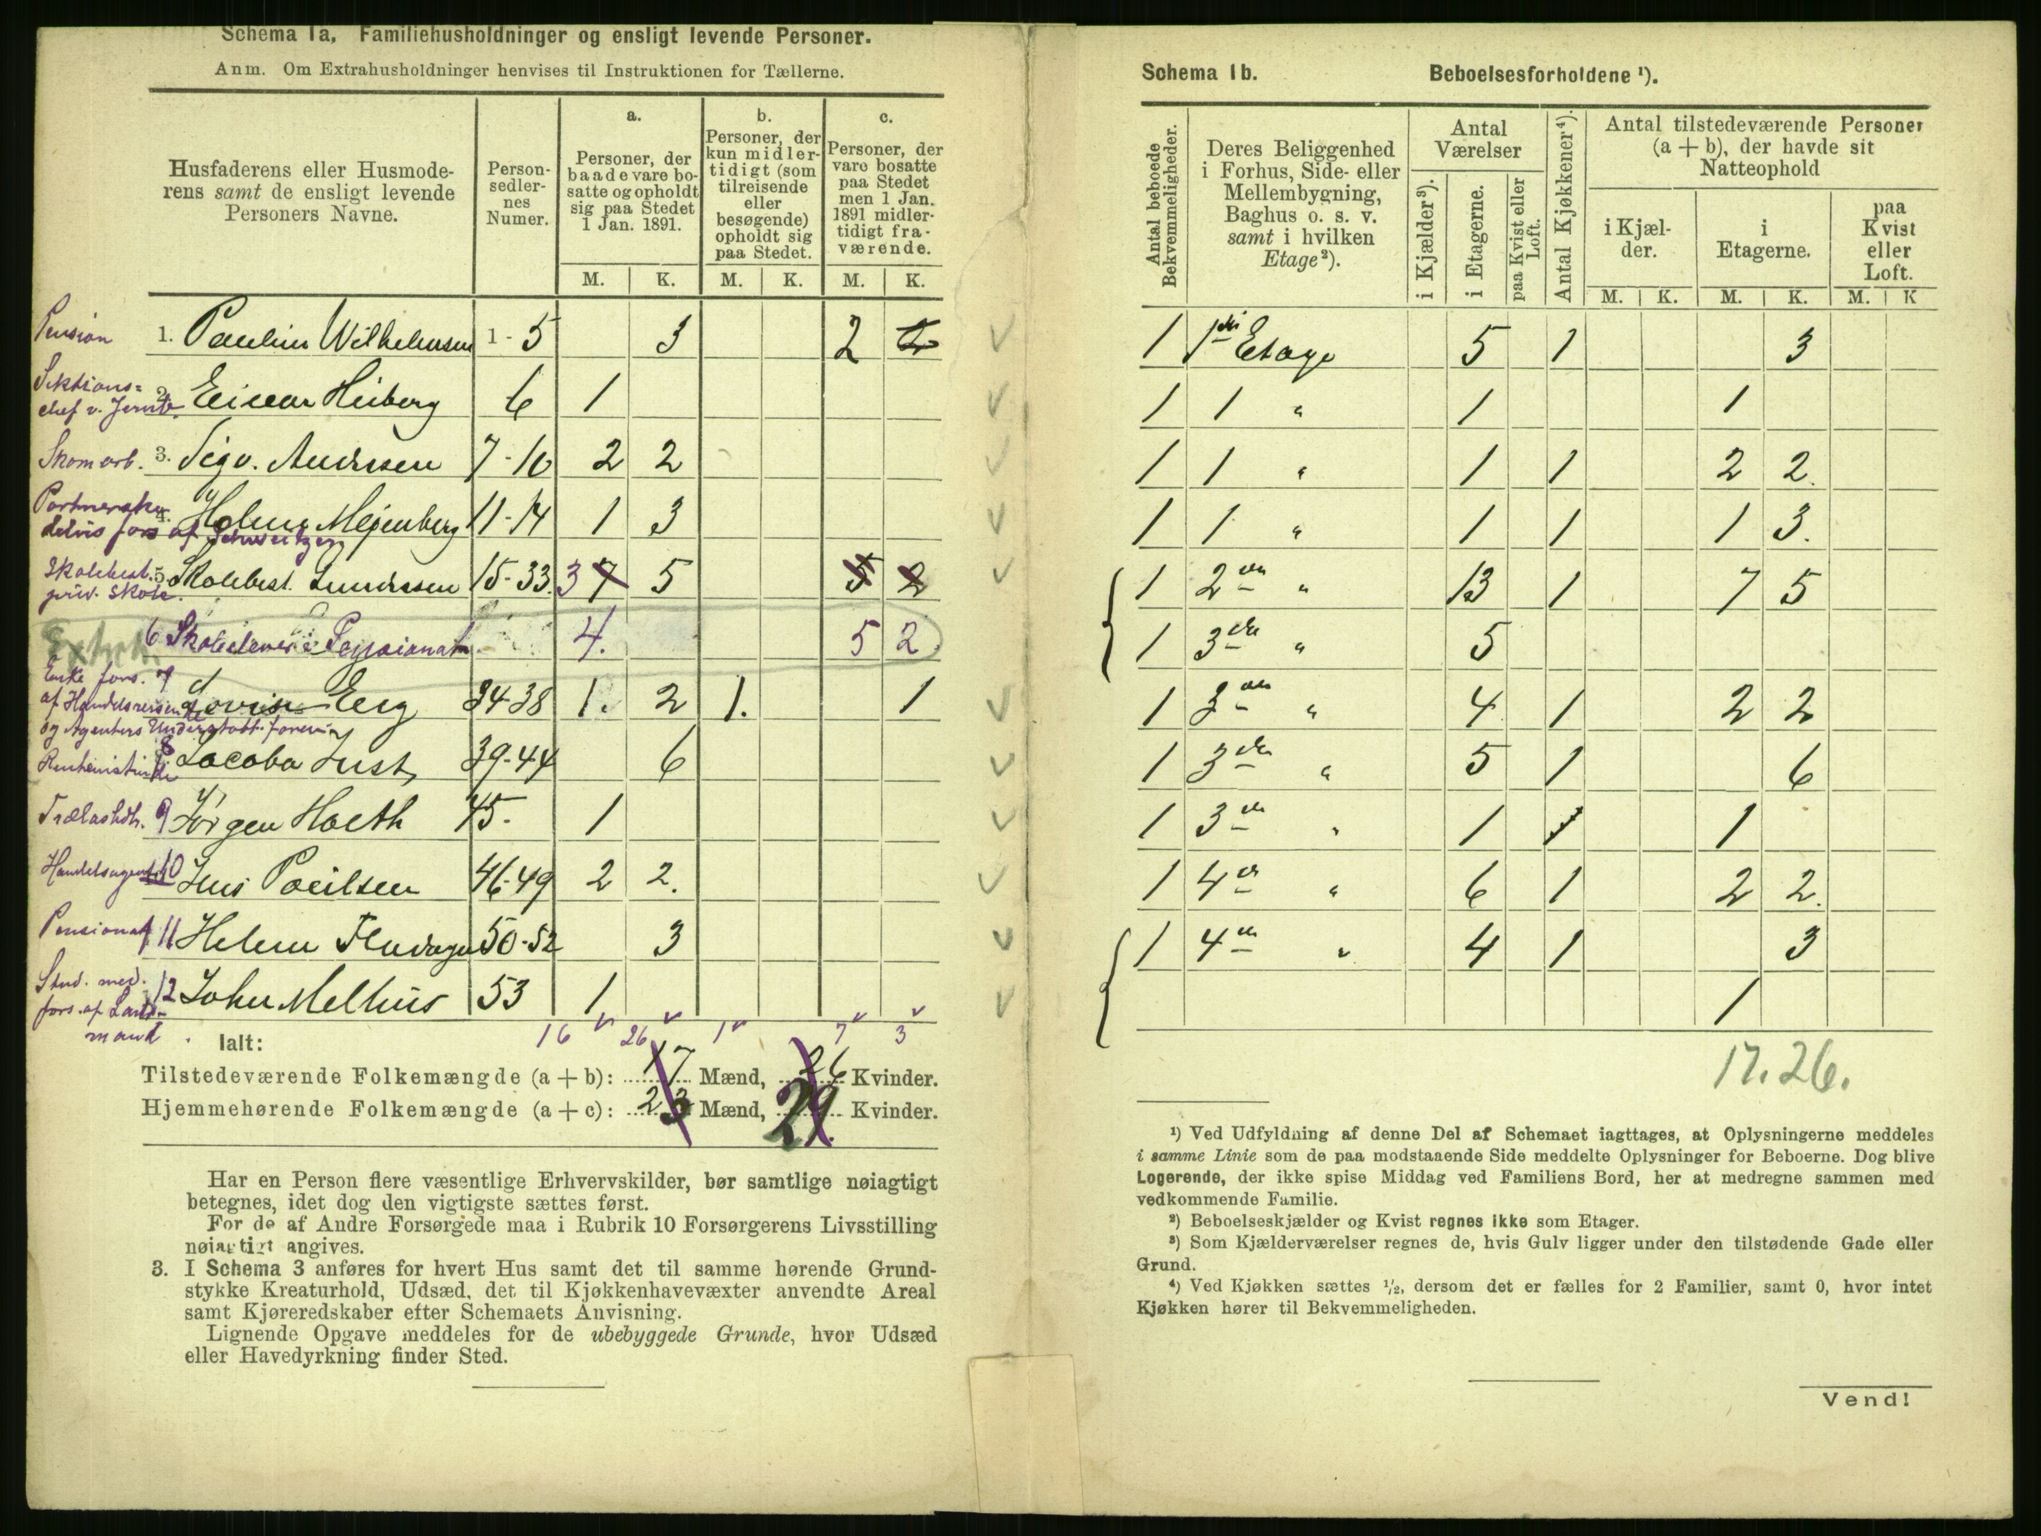 Schema 1a. Familiehusholdninger og ensligt levende Personer.
Anm. Om Extrahusholdninger henvises til Instruktionen for Tællerne.
Husfaderens eller Husmoderens samt de ensligt levende Personers Navne.
Personsedlernes Numer.
a. Personer, der baade vare bosatte og opholdt sig paa Stedet 1 Jan. 1891.
b. Personer, der kun midlertidigt (som tilreisende eller besøgende) opholdt sig paa Stedet.
c. Personer, der vare bosatte paa Stedet men 1 Jan. 1891 midlertidigt fraværende.
M. K. M. K. M. K.
Pension 1. Paulin Wilhelmsen 1-5 3 2 2
Sektions= chef v. Jernb. 2. Einar Heiberg 6 1
Skomarb. 3. Sigv. Andersen 7-10 2 2
4. Helene Mejenberg 11-14 1 3
delvis fors af
Skolebest. priv. Skole. 5. Skolebest. 15-33. 3 7 5 5 2
Extrah. 6 Skoleelever i Pensionat. 4. 5 2
Enke fors. af Handelsreisende og Agenters Understøtt. foren. 7 Lovise Erg 34-38 1. 2 1. 1
8 Jacoba Just 39-44 6
Trælasthdlr. 9 Jørgen Hoeth 45. 1
Handelsagent 10 Jens Poulsen 46-49 2 2.
Pensionat 11 Helene 50-52 3
Stud. med. fors. af Landmand 12 John Melhus 53 1
16 26 1 7 3
Ialt:
Tilstedeværende Folkemængde (a + b): 17 Mænd, 26 Kvinder.
Hjemmehørende Folkemængde (a + c): 23 Mænd, 29. Kvinder.
Har en Person flere væsentlige Erhvervskilder, bør samtlige nøiagtigt
betegnes, idet dog den vigtigste sættes først.
For de af Andre Forsørgede maa i Rubrik 10 Forsørgerens Livsstilling
nøiagtigt angives.
3. I Schema 3 anføres for hvert Hus samt det til samme hørende Grund-
stykke Kreaturhold, Udsæd, det til Kjøkkenhavevæxter anvendte Areal
samt Kjøreredskaber efter Schemaets Anvisning.
Lignende Opgave meddeles for de ubebyggede Grunde, hvor Udsæd
eller Havedyrkning finder Sted.
Schema 1b. Beboelsesforholdene ¹).
Antal beboede Bekvemmeligheder.
Deres Beliggenhed i Forhus, Side- eller Mellembygning, Baghus o. s. v. samt i hvilken Etage²).
Antal Værelser
i Kjælder³). i Etagerne. paa Kvist eller Loft.
Antal Kjøkkener⁴).
Antal tilstedeværende Personer (a + b), der havde sit Natteophold
i Kjælder. i Etagerne. paa Kvist eller Loft.
M. K. M. K. M. K
1 1ste Etage 5 1 3
1 1 " 1 1
1 1 " 1 1 2 2.
1 1 " 1 1 1 3.
1 2den " 13 1 7 5
1 3die " 5
1 3die " 4 1 2 2
1 3die " 5 1 6
1 3die " 1 1 1
1 4de " 6 1 2 2.
1 4de " 4 1 3
1
17. 26.
¹) Ved Udfyldning af denne Del af Schemaet iagttages, at Oplysningerne meddeles
i samme Linie som de paa modstaaende Side meddelte Oplysninger for Beboerne. Dog blive
Logerende, der ikke spise Middag ved Familiens Bord, her at medregne sammen med
vedkommende Familie.
²) Beboelseskjælder og Kvist regnes ikke som Etager.
³) Som Kjælderværelser regnes de, hvis Gulv ligger under den tilstødende Gade eller
Grund.
⁴) Ved Kjøkken sættes ½, dersom det er fælles for 2 Familier, samt 0, hvor intet
Kjøkken hører til Bekvemmeligheden.
Vend!